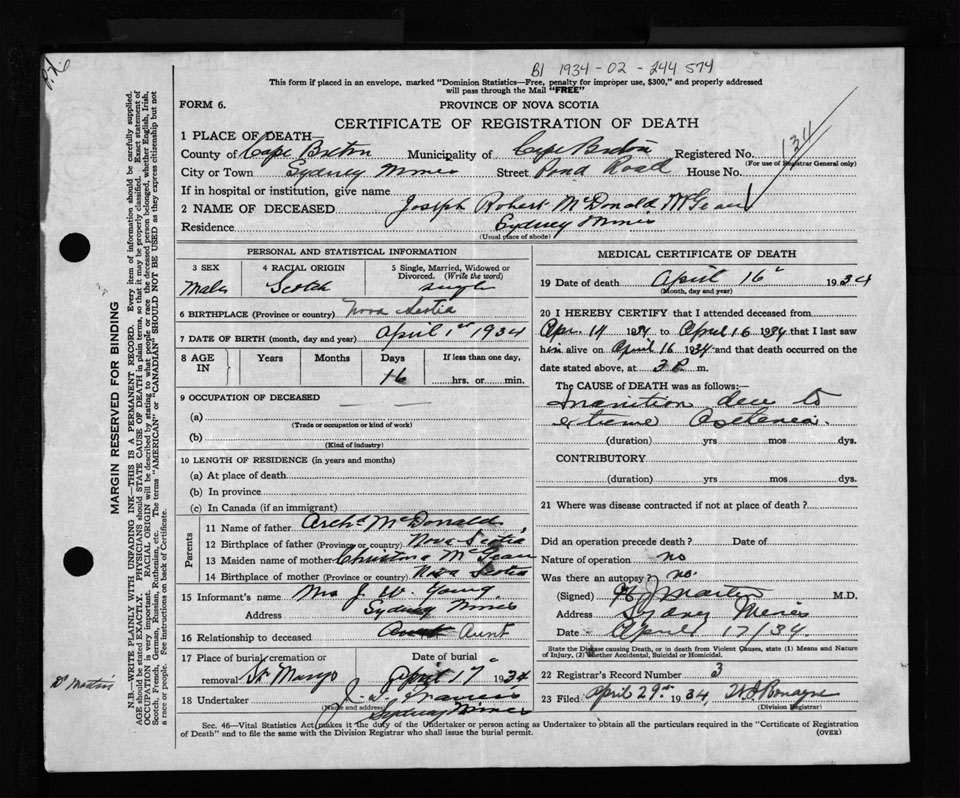 B1 1934-02-244 574
This form if placed in an envelope, marked "Dominion Statistics—Free, penalty for improper use, $300," and properly addressed
will pass through the Mail "FREE"
FORM 6.
PROVINCE OF NOVA SCOTIA
CERTIFICATE OF REGISTRATION OF DEATH
1 PLACE OF DEATH—
County of Cape Breton Municipality of Cape Breton Registered No. 134
(For use of Registrar General only)
City or Town Sydney Mines Street Pond Road House No.
If in hospital or institution, give name
2 NAME OF DECEASED Joseph Robert McDonald McLean
Residence Sydney Mines
(Usual place of abode)
PERSONAL AND STATISTICAL INFORMATION
3 SEX
Male
4 RACIAL ORIGIN
Scotch
5 Single, Married, Widowed or
Divorced. (Write the word)
single
6 BIRTHPLACE (Province or country) Nova Scotia
7 DATE OF BIRTH (month, day and year) April 1st 1934
8 AGE IN
Years
Months
Days
16
If less than one day,
hrs. or min.
9 OCCUPATION OF DECEASED
(a)
(Trade or occupation or kind of work)
(b)
(Kind of industry)
10 LENGTH OF RESIDENCE (in years and months)
(a) At place of death
(b) In province
(c) In Canada (if an immigrant)
Parents
11 Name of father Archd McDonald
12 Birthplace of father (Province or country) Nova Scotia
13 Maiden name of mother Christina McLean
14 Birthplace of mother (Province or country) Nova Scotia
15 Informant's name Mrs J. W. Young
Address Sydney Mines
16 Relationship to deceased Aunt Aunt
17 Place of burial, cremation or
removal St Marys
Date of burial
April 17 1934
18 Undertaker
(Name and address)
Sydney Mines
MEDICAL CERTIFICATE OF DEATH
19 Date of death April 16" 1934
(Month, day and year)
20 I HEREBY CERTIFY that I attended deceased from
Apr. 14 1934 to April 16 1934 that I last saw
him alive on April 16 1934 and that death occurred on the
date stated above, at 3 P. m.
The CAUSE OF DEATH was as follows:—
Inanition due to
extreme
(duration) yrs mos dys.
CONTRIBUTORY
(duration) yrs mos dys.
21 Where was disease contracted if not at place of death?
Did an operation precede death? Date of
Nature of operation no
Was there an autopsy? no.
(Signed) M.D.
Address Sydney Mines
Date April 17/34.
State the Disease causing Death, or in death from Violent Causes, state (1) Means and Nature
of Injury, (2) whether Accidental, Suicidal or Homicidal.
22 Registrar's Record Number 3
23 Filed April 29th 1934,
(Division Registrar)
Sec. 46—Vital Statistics Act makes it the duty of the Undertaker or person acting as Undertaker to obtain all the particulars required in the "Certificate of Registration
of Death" and to file the same with the Division Registrar who shall issue the burial permit.
(OVER)
MARGIN RESERVED FOR BINDING
N.B.—WRITE PLAINLY WITH UNFADING INK—THIS IS A PERMANENT RECORD. Every item of information should be carefully supplied.
AGE should be stated EXACTLY. PHYSICIANS should STATE CAUSE OF DEATH in plain terms, so that it may be properly classified. Exact statement of
OCCUPATION is very important. RACIAL ORIGIN will be described by stating to what people or race the deceased person belonged, whether English, Irish,
Scotch, French, German, Russian, Ruthenian, etc. The terms "AMERICAN" or "CANADIAN" SHOULD NOT BE USED as they express citizenship but not
a race or people. See instructions on back of Certificate.